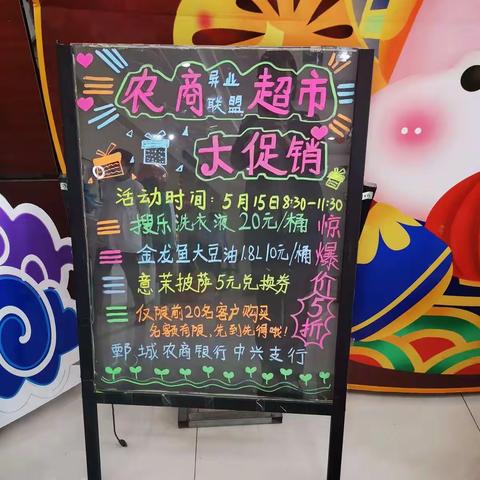 农商异业联盟超市
大促销
活动时间：5月15日8:30-11:30
搜乐洗衣液20元/桶
金龙鱼大豆油1.8L10元/桶
意茉披萨5元兑换券
仅限前20名客户购买
名额有限，先到先得哦！
惊爆价5折
鄄城农商银行中兴支行